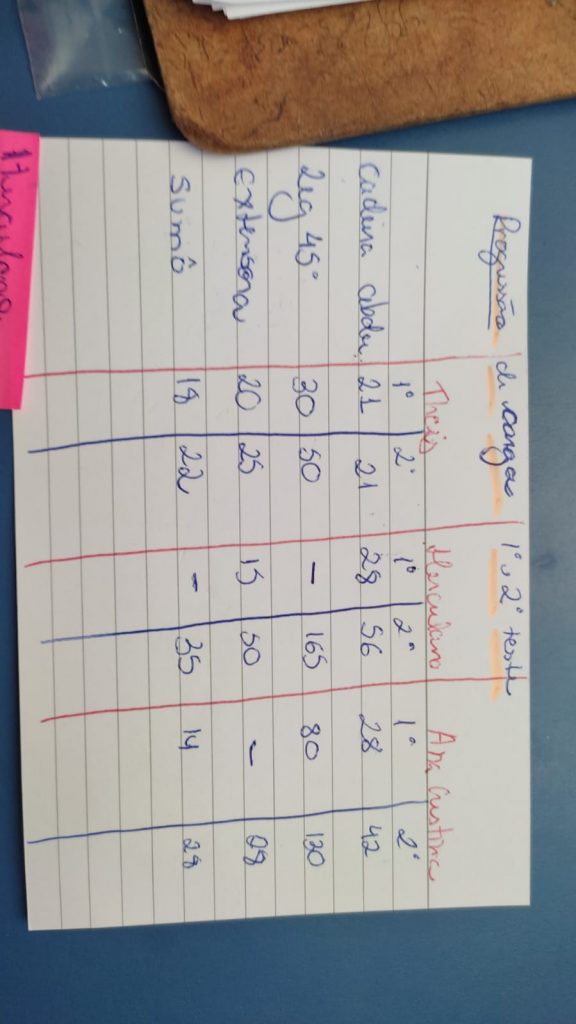 Progressão de carga 1º e 2º teste
Thais Herculano Ana Cristina
1º 2º 1º 2º 1º 2º
cadeira abdu. 21 21 28 56 28 42
Leg 45º 30 50 - 165 80 130
extensora 20 25 15 50 - 28
Sumô 18 22 - 35 14 28
Herculano